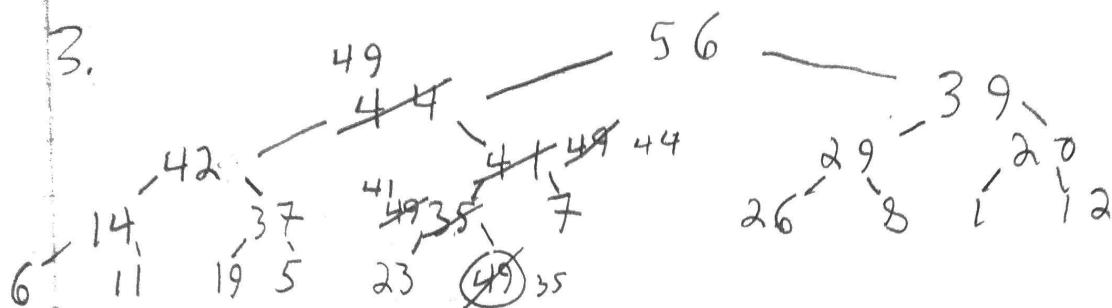 3.
49
56
44
39
42
41 49 44
29
20
41
49 35
7
14
37
26
8
1
12
6
11
19
5
23
49 35